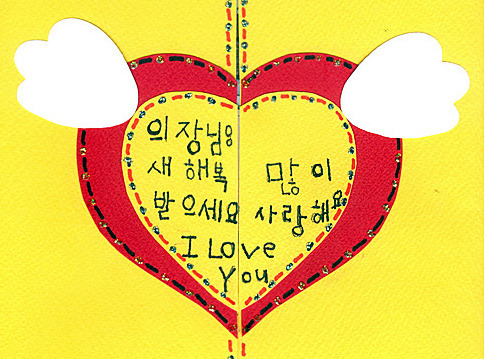 의장님:
새해복 많이
받으세요 사랑해요
I Love
You